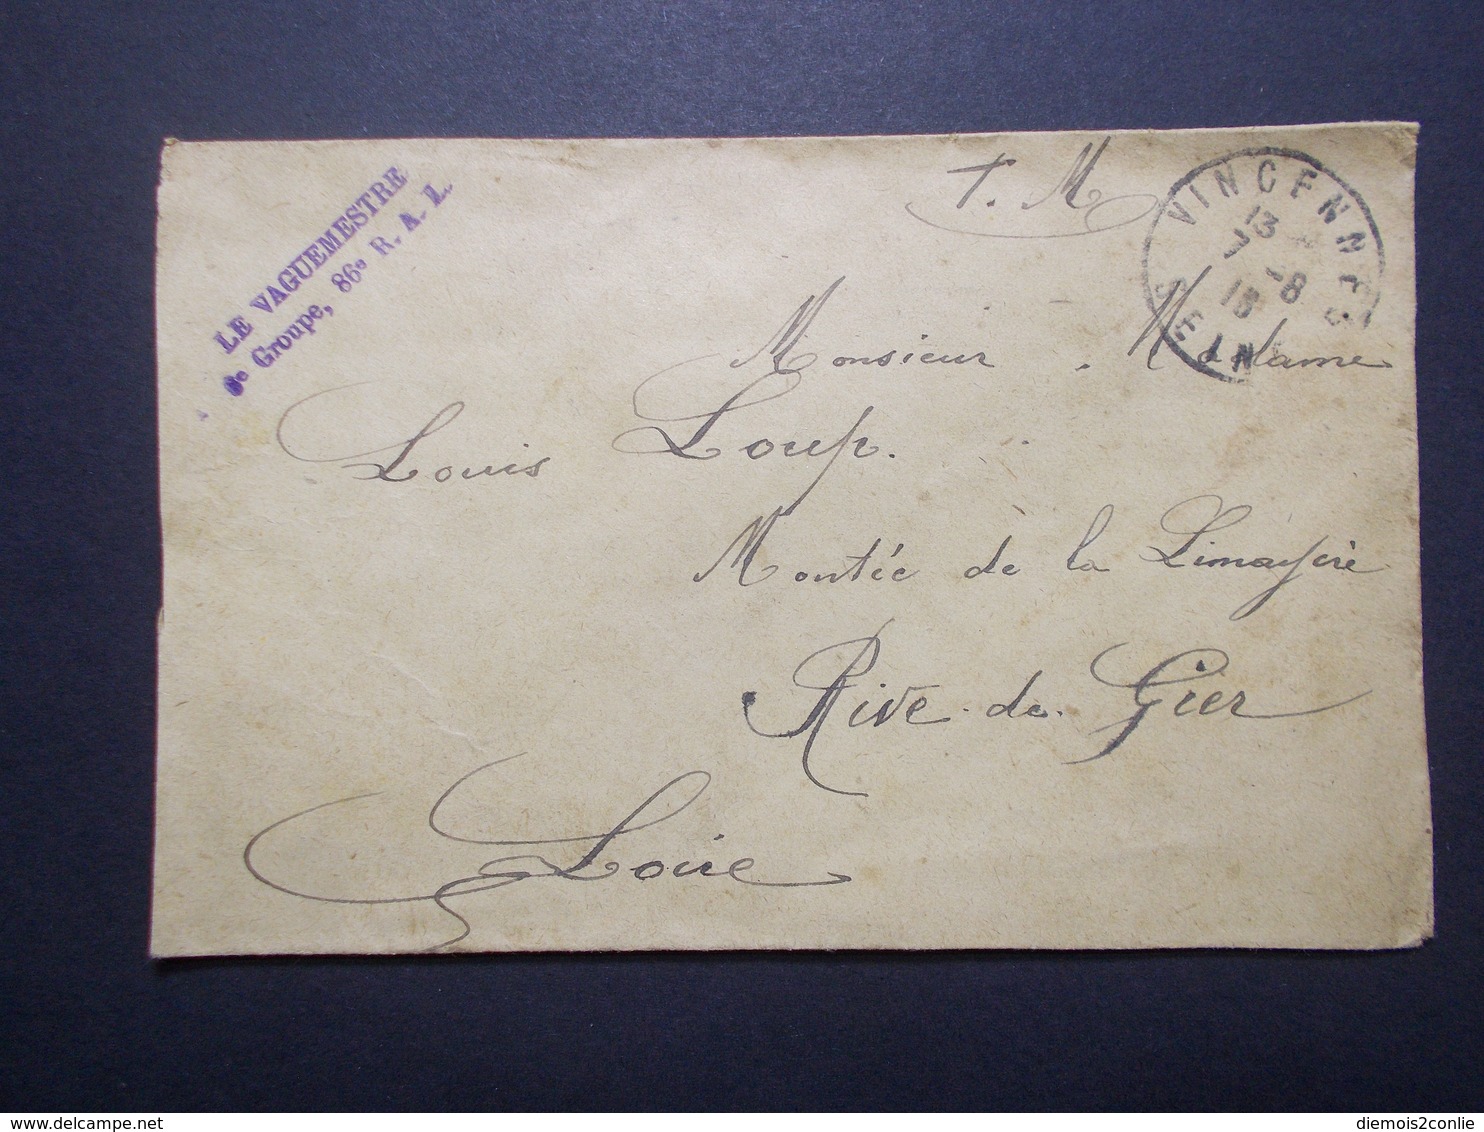 LE VAGUEMESTRE
6e Groupe, 86e R. A. L.
F. M.
VINCENNES
13
7 -8
18
SEINE
Monsieur. Madame
Louis Loup.
Montée de la
Rive-de-Gier
Loire
diemois2conlie